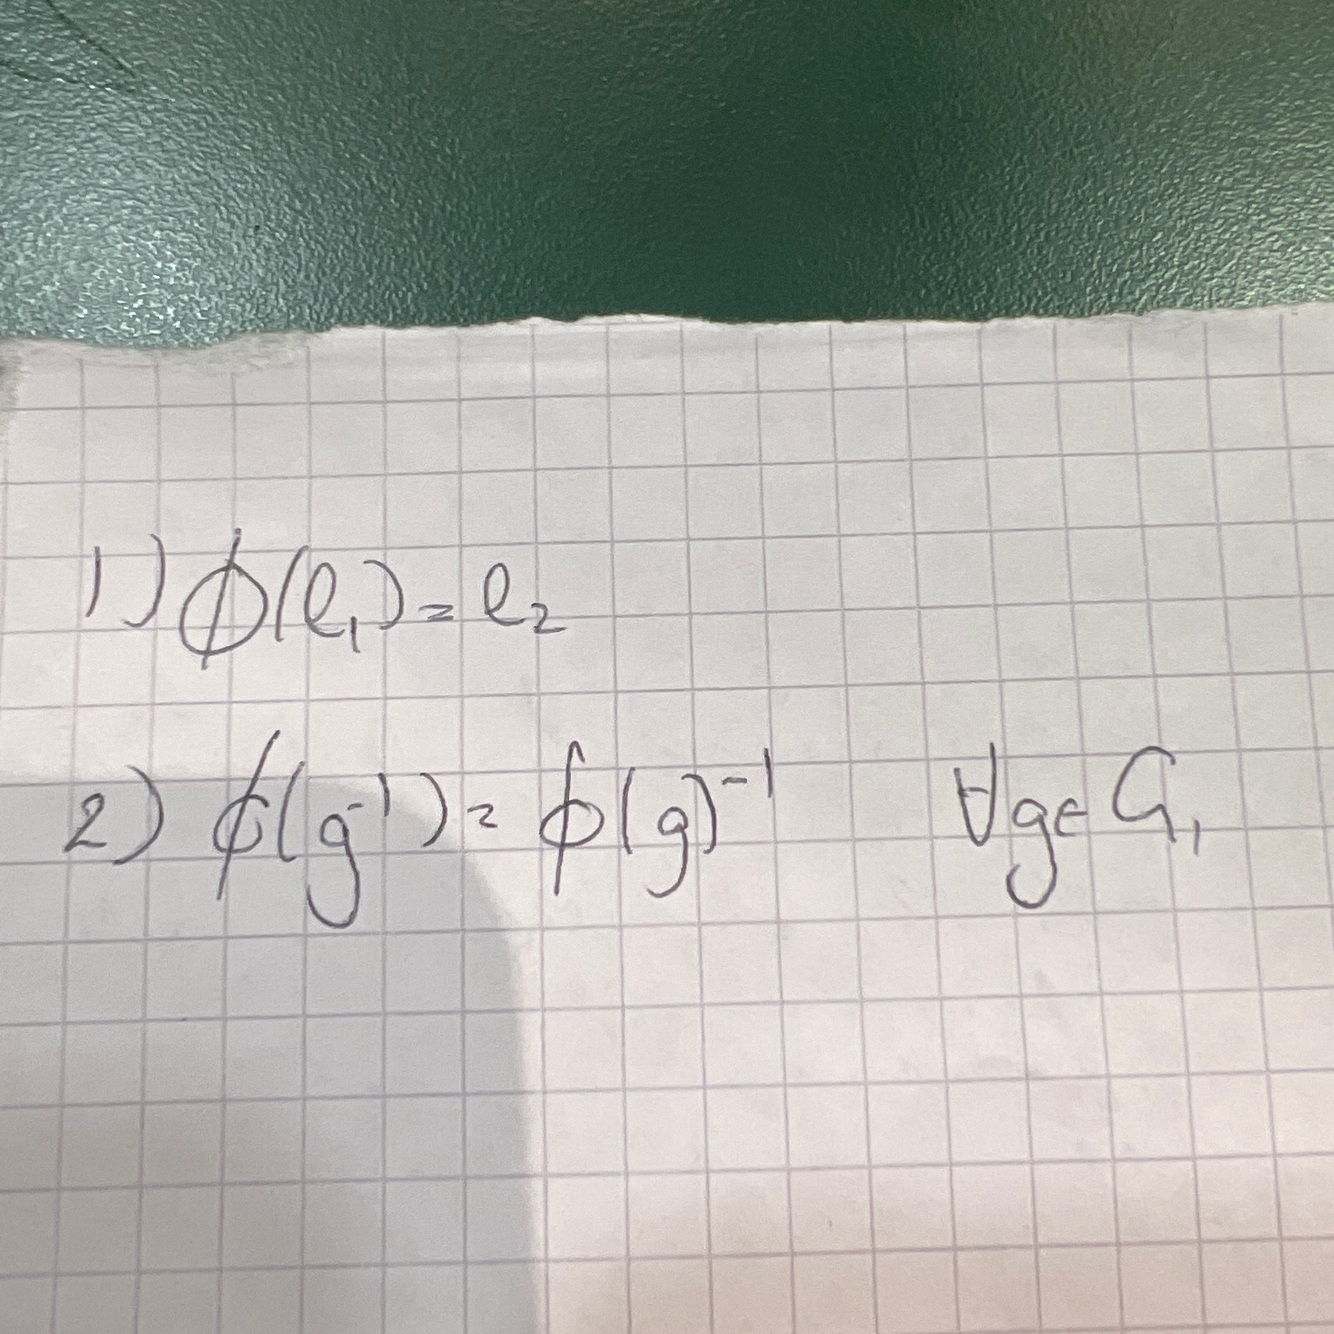 1) ϕ(e₁) = e₂
2) ϕ(g⁻¹) = ϕ(g)⁻¹ ∀g∈G₁